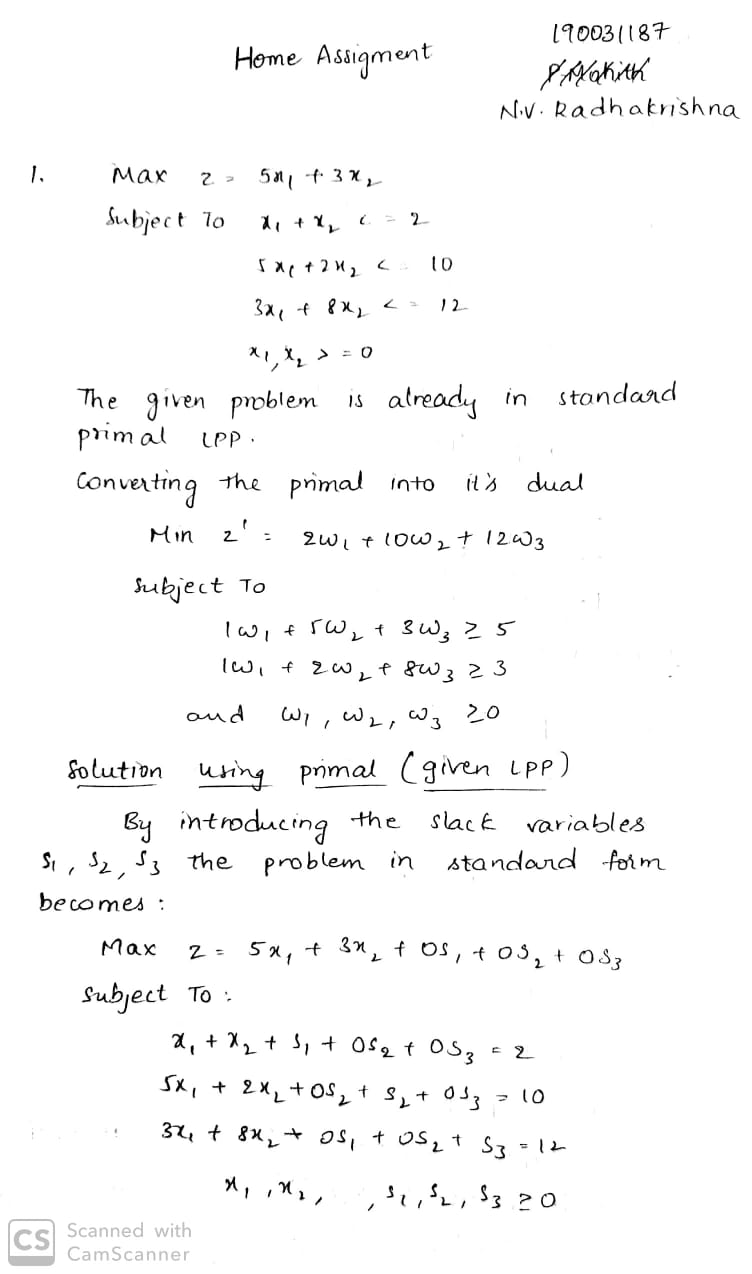 190031187
Home Assigment
N.V. Radhakrishna
1. Max z = 5x₁ + 3x₂
Subject To x₁ + x₂ <= 2
5x₁ + 2x₂ <= 10
3x₁ + 8x₂ <= 12
x₁, x₂ >= 0
The given problem is already in standard
primal LPP.
Converting the primal into it's dual
Min z' = 2w₁ + 10w₂ + 12w₃
Subject To
1w₁ + 5w₂ + 3w₃ ≥ 5
1w₁ + 2w₂ + 8w₃ ≥ 3
and w₁, w₂, w₃ ≥0
Solution using primal (given LPP)
By introducing the slack variables
s₁, s₂, s₃ the problem in standard form
becomes :
Max z = 5x₁ + 3x₂ + 0s₁ + 0s₂ + 0s₃
Subject To :
x₁ + x₂ + s₁ + 0s₂ + 0s₃ = 2
5x₁ + 2x₂ + 0s₂ + s₂ + 0s₃ = 10
3x₁ + 8x₂ + 0s₁ + 0s₂ + s₃ = 12
x₁, x₂, , s₁, s₂, s₃ ≥ 0
CS Scanned with
CamScanner